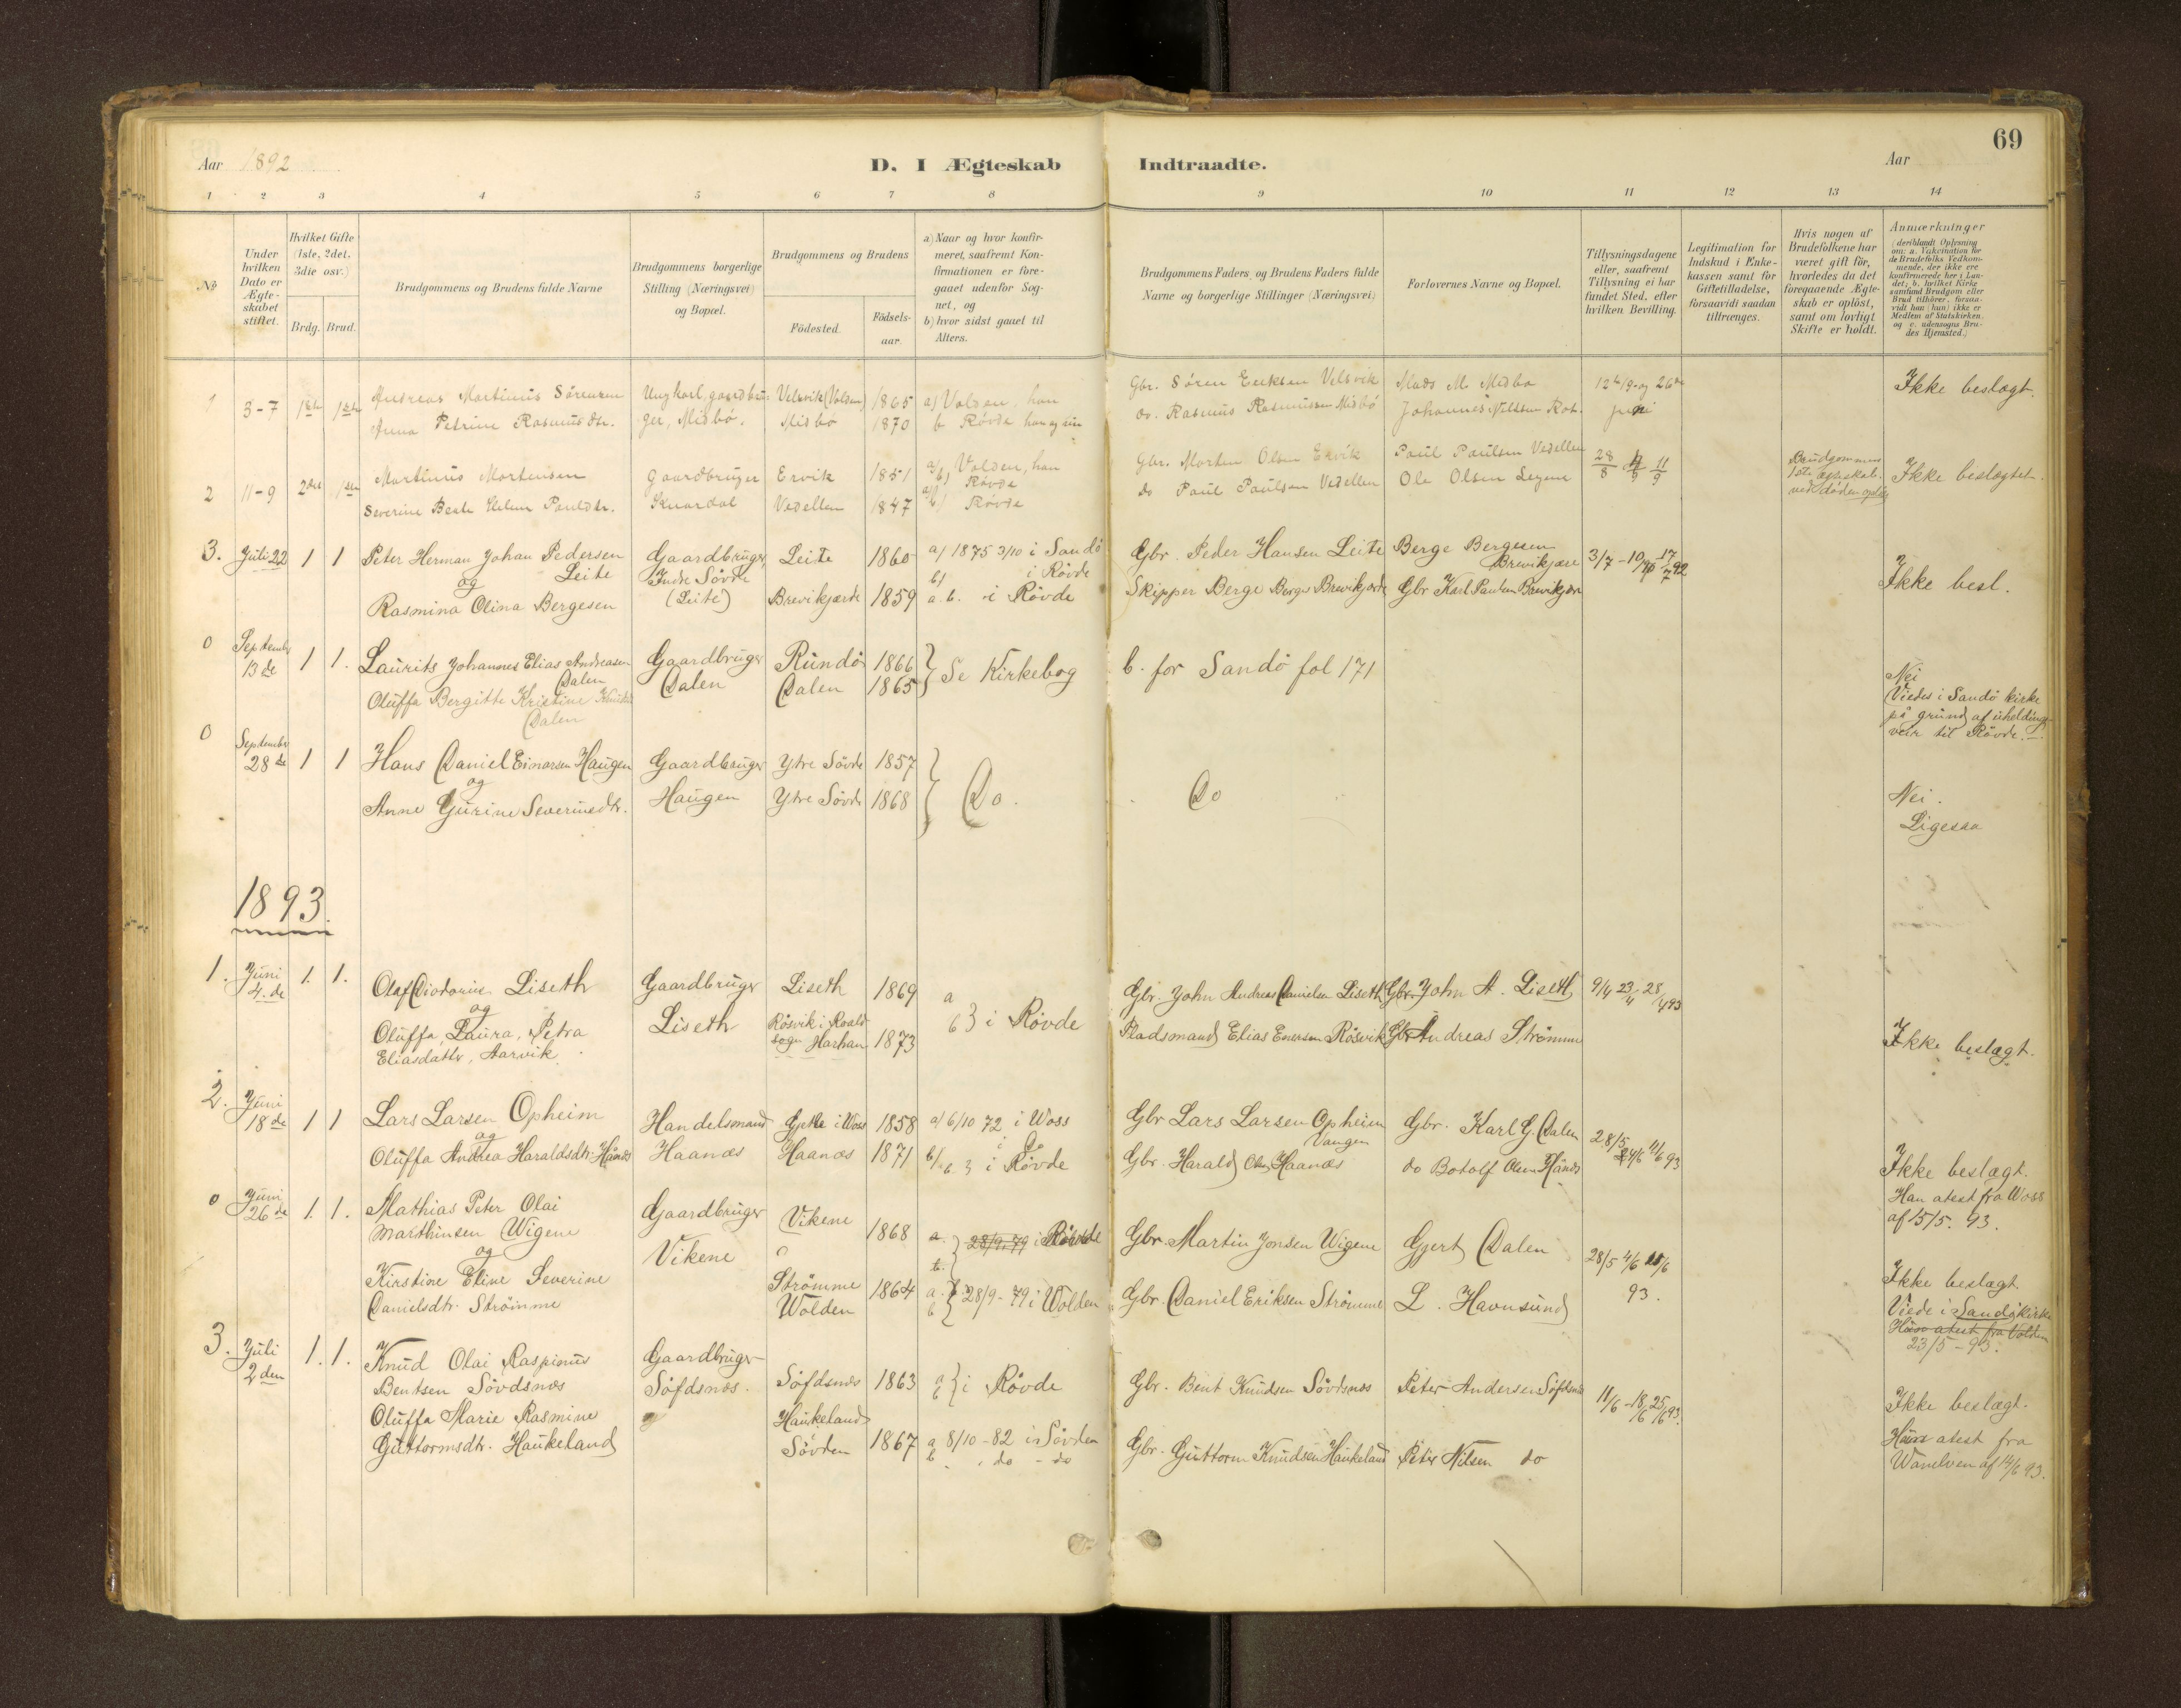 69
Aar 1892
D. I Ægteskab Indtraadte.
Aar
1 2 3 4 5 6 7 8 9 10 11 12 13 14
No
Under hvilken Dato er Ægteskabet stiftet.
Hvilket Gifte (1ste, 2det, 3die osv.)
Brdg. Brud.
Brudgommens og Brudens fulde Navne
Brudgommens borgerlige Stilling (Næringsvei) og Bopæl.
Brudgommens og Brudens
Födested.
Födselsaar.
a) Naar og hvor konfirmeret, saafremt Konfirmationen er foregaaet udenfor Sognet, og
b) hvor sidst gaaet til Alters.
Brudgommens Faders og Brudens Faders fulde Navne og borgerlige Stillinger (Næringsvei)
Forlovernes Navne og Bopæl.
Tillysningsdagene eller, saafremt Tillysning ei har fundet Sted, efter hvilken Bevilling.
Legitimation for Indskud i Enkekassen samt for Giftetilladelse, forsaavidt saadan tiltrænges.
Hvis nogen af Brudefolkene har været gift för, hvorledes da det foregaaende Ægteskab er oplöst, samt om lovligt Skifte er holdt.
Anmærkninger
(deriblandt Oplysning om: a. Vakcination for de Brudefolks Vedkommende, der ikke ere konfirmerede her i Landet; b. hvilket Kirkesamfund Brudgom eller Brud tilhörer, forsaavidt han (hun) ikke er Medlem af Statskirken, og c. udensogns Brudes Hjemsted.)
1 3-7 1ste 1ste Andreas Martinus Sörensen Ungkarl, gaardbru- Velsvik (Volden) 1865 a) Volden, han Gbr. Sören Eriksen Velsvik Mads M. Midbø 12te 19- og 26de Ikke beslægt.
Anna Petrine Rasmusdtr. ger, Midbö. Midbö 1870 b Rövde han og hun do. Rasmus Rasmussen Midbö Johannes Nilssen Rot. juni
2 11-9 2det 1ste Martinus Mortensen Gaardbruger Ervik 1851 a) Volden, han Gbr. Morten Olsen Ervik Paul Paulsen Vedellen 28/8 4/9 11/9 Brudgommens 1ste ægteskab ved døden opløst Ikke beslægtet.
b) Rövde
Severine Beate Eleline Paulsdtr. Knardal Vedellen 1847 Rövde do Paul Paulsen Vedellen Ole Olsen Leyene
3. Juli 22 1 1 Peter Herman Johan Pedersen Gaardbruger, Leite 1860 a) 1875 3/10 i Sandö Gbr. Peder Hansen Leite Berge Bergesen Brevikjære 3/7 - 10/7 17/7 92
og Leite Indre Sövde b) i Rövde Ikke besl.
Rasmina Olina Bergesen (Leite) Brevikjærde 1859 a. b. i Rövde Skipper Berge Berges Brevikjærde Gbr Karl Paulsen Brevikjær
0 September 13de 1 1. Laurits Johannes Elias Andreasen Gaardbruger Rundö 1866 Se Kirkebog b. for Sandö fol 171 Nei
Dalen Dalen Dalen 1865 Viedes i Sandö kirke
Oluffa Bergitte Kristine Knudsd på grund af uhelding
Dalen veir til Rövde.
0 September 28de 1 1 Hans Daniel Einarsen Haugen Gaardbruger Ytre Sövde 1857 Do. Do Nei.
og
Anne Gurine Severinedtr. Haugen Ytre Sövde 1868 Ligesaa
1893.
1. Juni 4.de 1. 1. Olaf Diodorius Liseth Gaardbruger Liseth 1869 a Gbr. John Andreas Danielsen Liseth Gbr. John A. Liseth 9/4 23/4 28/4 93
og Liseth Rösvik i Roald b } i Rövde
Oluffa, Laura, Petra sogn Harhan 1873 Pladsmand Elias Enersen Rösvik Gbr Andreas Strömme Ikke beslægt.
Eliasdattr, Aarvik
2. Juni 18de 1 1 Lars Larsen Opheim Handelsmand Gjelle i Woss 1858 a/ 6/10 72 i Woss Gbr Lars Larsen Opheim Gbr. Karl G. Dalen 28/5 4/6 11/6 93
og i Do Vangen
Oluffa Andrea Haraldsdtr. Haanæs Haanæs Haanæs 1871 b/ i Rövde Gbr. Harald Olsen Haanæs do Botolf Olsen Hånæs Ikke beslægt.
Han atest fra Woss
af 15/5. 93.
0 Juni 26de 1. 1. Mathias Peter Olai Gaardbruger Vikene 1868 a. 28/9 79 i Rövde Gbr. Martin Jonsen Wigene Gjert Dalen 28/5 4/6 11/6 93.
Marthinsen Wigene Vikene b.
og
Kirstine Eline Severine Strömme 1864 a. b } 28/9 - 79 i Wolden Gbr. Daniel Eriksen Strömme L. Havnsund Ikke beslægt
Danielsdtr. Strömme Wolden Viede i Sandökirke
Hans atest fra Volden
23/5 - 93.
3. Juli 2den 1. 1. Knud Olai Raspinus Gaardbruger
Bentsen Sövdsnæs Söfdsnæs. Söfdsnæs 1863 a b } i Rövde Gbr. Bent Knudsen Sövdsnæs Peter Andersen Söfdsnæs 11/6 - 18/6 25/6 93. Ikke beslægt.
Oluffa Marie Rasmine Haukeland Huns atest fra
Guttormsdtr. Haukeland Sövden 1867 a 8/10 - 82 i Sövden Gbr. Guttorm Knudsen Haukeland Peter Nilsen do Wanelven af 14/6 93.
b " do - do